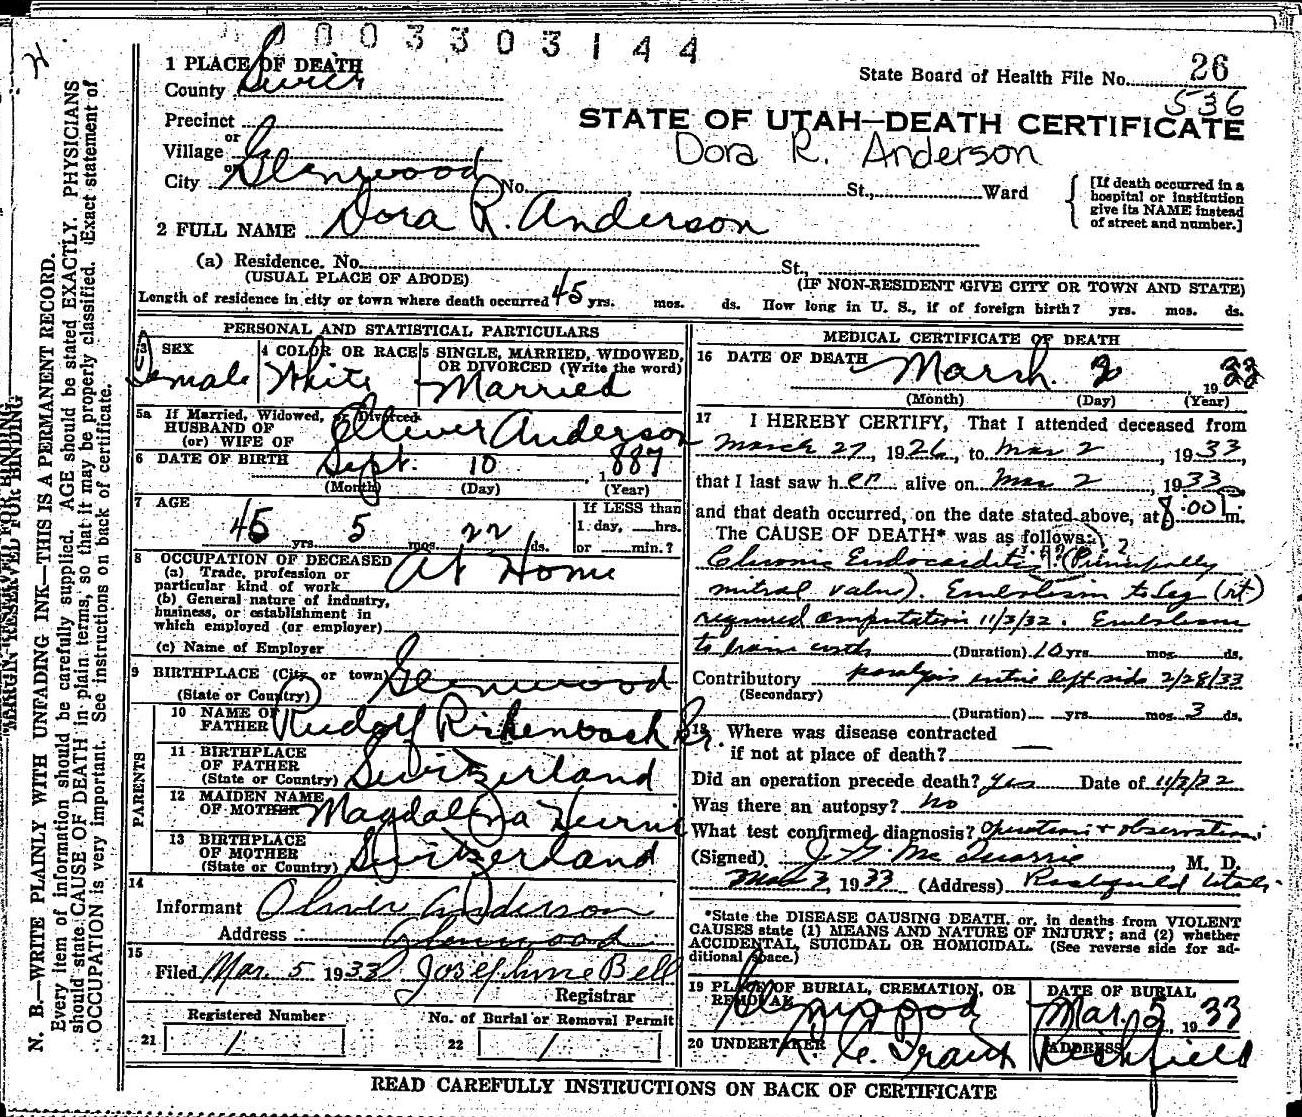 003303144
1 PLACE OF DEATH
County Sevier
State Board of Health File No. 26
536
Precinct
or
Village
or
City Glenwood No. St., Ward
STATE OF UTAH—DEATH CERTIFICATE
Dora R. Anderson
[If death occurred in a hospital or institution give its NAME instead of street and number.]
2 FULL NAME Dora R. Anderson
(a) Residence. No. St.,
(USUAL PLACE OF ABODE) (IF NON-RESIDENT GIVE CITY OR TOWN AND STATE)
Length of residence in city or town where death occurred 45 yrs. mos. ds. How long in U. S., if of foreign birth? yrs. mos. ds.
PERSONAL AND STATISTICAL PARTICULARS
3 SEX Female
4 COLOR OR RACE White
5 SINGLE, MARRIED, WIDOWED, OR DIVORCED (Write the word) Married
5a If Married, Widowed, or Divorced
HUSBAND OF
(or) WIFE OF Oliver Anderson
6 DATE OF BIRTH Sept. 10 1887
(Month) (Day) (Year)
7 AGE 45 yrs. 5 mos. 22 ds.
If LESS than
1 day, hrs.
or min.?
8 OCCUPATION OF DECEASED At Home
(a) Trade, profession or
particular kind of work
(b) General nature of industry,
business, or establishment in
which employed (or employer)
(c) Name of Employer
9 BIRTHPLACE (City or town) Glenwood
(State or Country)
PARENTS
10 NAME OF FATHER Rudolf Rickenbach Sr.
11 BIRTHPLACE OF FATHER (State or Country) Switzerland
12 MAIDEN NAME OF MOTHER Magdalena Hurni
13 BIRTHPLACE OF MOTHER (State or Country) Switzerland
14
Informant Oliver Anderson
Address Glenwood
15
Filed Mar. 5 1933 Josephine Bell
Registrar
Registered Number
21 1
No. of Burial or Removal Permit
22 1
MEDICAL CERTIFICATE OF DEATH
16 DATE OF DEATH March 2 1933
(Month) (Day) (Year)
17 I HEREBY CERTIFY, That I attended deceased from
March 27, 1926, to Mar 2, 1933,
that I last saw her alive on Mar 2, 1933
and that death occurred, on the date stated above, at 8:00 P. m.
The CAUSE OF DEATH* was as follows:
Chronic Endocarditis (Principally
mitral valve). Embolism to leg (rt)
required amputation 11/3/32. Embolism
to brain with (Duration) 10 yrs. mos. ds.
Contributory paralysis entire left side 2/28/33
(Secondary)
(Duration) yrs. mos. 3 ds.
18 Where was disease contracted
if not at place of death? —
Did an operation precede death? Yes Date of 11/3/32
Was there an autopsy? No
What test confirmed diagnosis? Operation + observation
(Signed) J. G. McQuarrie, M. D.
Mar 3, 1933 (Address) Richfield Utah.
*State the DISEASE CAUSING DEATH, or, in deaths from VIOLENT
CAUSES state (1) MEANS AND NATURE OF INJURY; and (2) whether
ACCIDENTAL, SUICIDAL OR HOMICIDAL. (See reverse side for ad-
ditional space.)
19 PLACE OF BURIAL, CREMATION, OR REMOVAL Glenwood
DATE OF BURIAL Mar. 5, 1933
20 UNDERTAKER
ADDRESS Richfield
READ CAREFULLY INSTRUCTIONS ON BACK OF CERTIFICATE
MARGIN RESERVED FOR BINDING
N. B.—WRITE PLAINLY WITH UNFADING INK—THIS IS A PERMANENT RECORD.
Every item of information should be carefully supplied. AGE should be stated EXACTLY. PHYSICIANS
should state CAUSE OF DEATH in plain terms, so that it may be properly classified. Exact statement of
OCCUPATION is very important. See instructions on back of certificate.